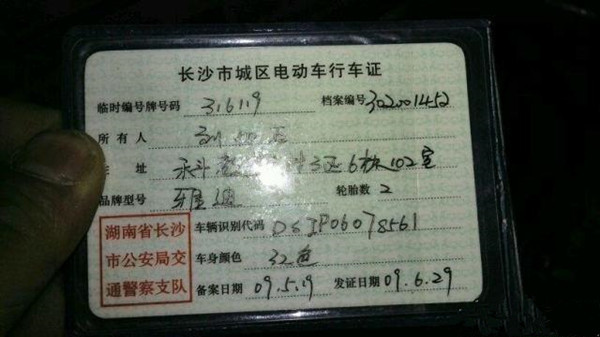 长沙市城区电动车行车证
临时编号牌号码 31619 档案编号 302001452
所有人
址 6栋102室
品牌型号 轮胎数 2
湖南省长沙
市公安局交
通警察支队
车辆识别代码
车身颜色 红色
备案日期 09.5.19 发证日期 09.6.29